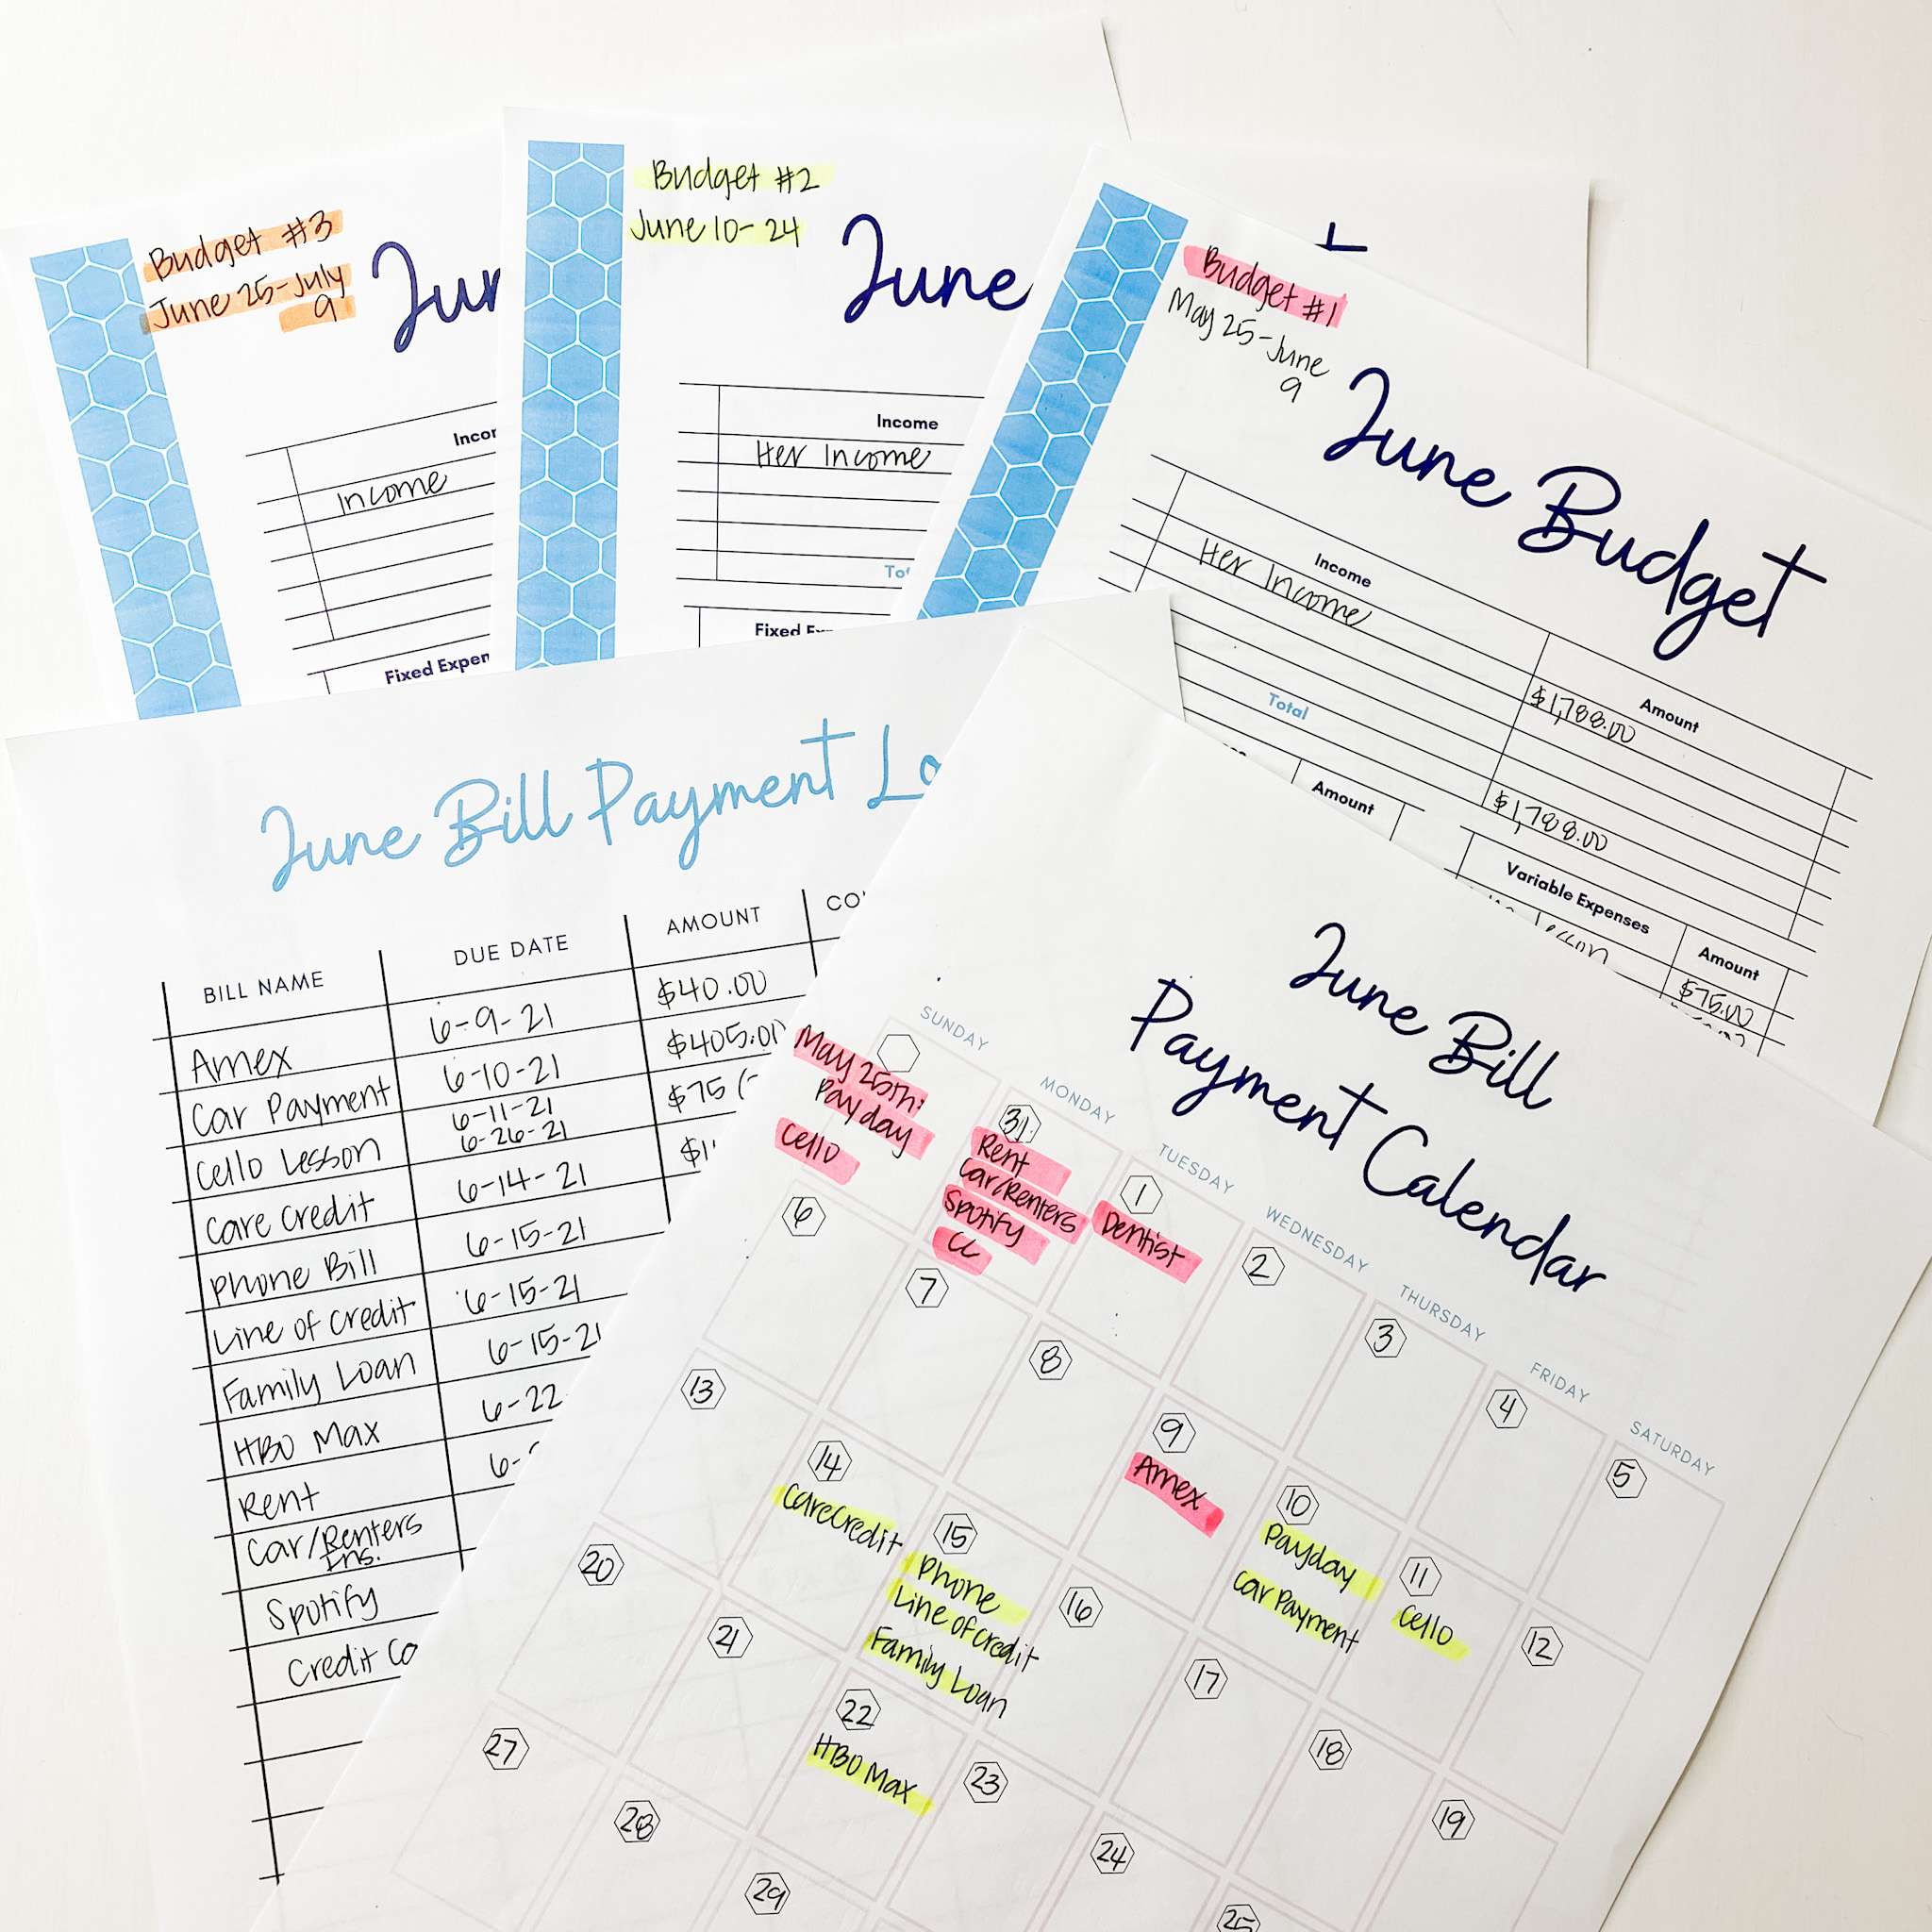 Budget #3
June 25-July
9
Income
Budget #2
June 10-24
June
Income
Her Income
Budget #1
May 25-June
9
June Budget
Income
Amount
Her Income
$1,788.00
Total
$1,788.00
Fixed
Fixed
Amount
Variable Expenses
Amount
$75.00
June Bill Payment
BILL NAME
DUE DATE
AMOUNT
Amex
6-9-21
$40.00
Car Payment
6-10-21
$405.00
Cello Lesson
6-11-21
6-26-21
$75
Care Credit
6-14-21
Phone Bill
6-15-21
Line of Credit
6-15-21
Family Loan
6-15-21
HBO Max
6-22
Rent
Car/Renters
Ins.
Spotify
Credit
June Bill
Payment Calendar
SUNDAY
MONDAY
TUESDAY
WEDNESDAY
THURSDAY
FRIDAY
SATURDAY
May 25th:
Payday
Cello
31
Rent
Car/Renters
Spotify
CC
1
Dentist
2
3
4
5
6
7
8
9
Amex
10
Payday
Car Payment
11
Cello
12
13
14
CareCredit
15
Phone
Line of Credit
Family Loan
16
17
18
19
20
21
22
HBO Max
23
24
25
27
28
29